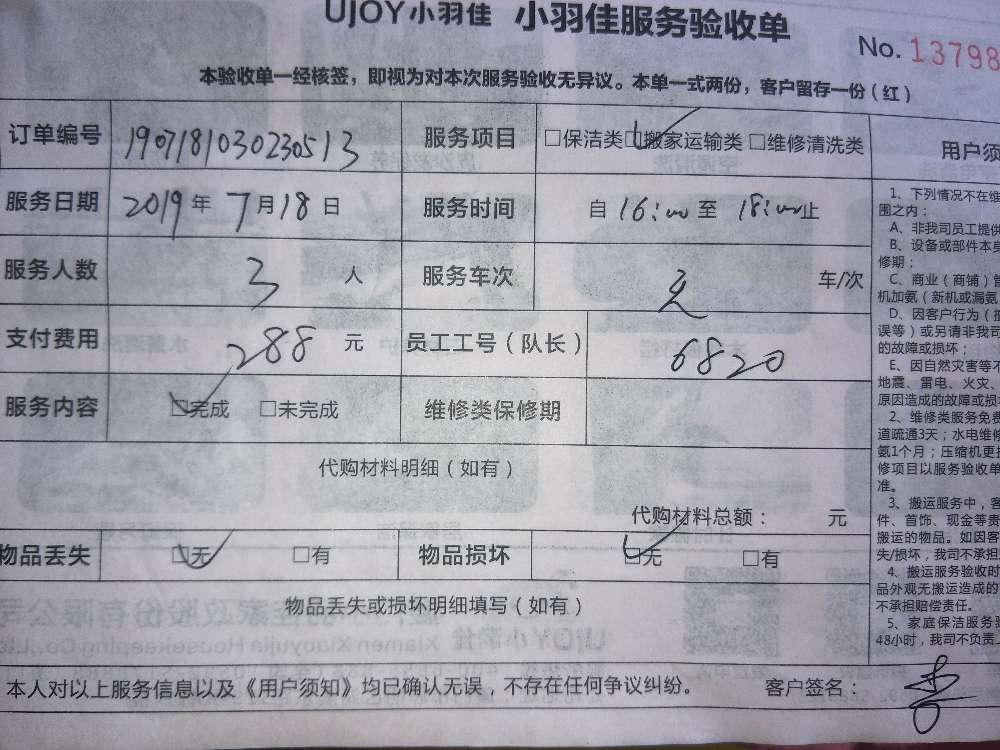 UJOY小羽佳 小羽佳服务验收单
No. 13798
本验收单一经核签，即视为对本次服务验收无异议。本单一式两份，客户留存一份（红）
订单编号 1907181030230513 服务项目 □保洁类 □搬家运输类 □维修清洗类
服务日期 2019年7月18日 服务时间 自16:00至18:00止
服务人数 3人 服务车次 车/次
支付费用 288元 员工工号（队长） 6820
服务内容 □完成 □未完成 维修类保修期
代购材料明细（如有）
代购材料总额： 元
物品丢失 □无 □有 物品损坏 □无 □有
物品丢失或损坏明细填写（如有）
本人对以上服务信息以及《用户须知》均已确认无误，不存在任何争议纠纷。 客户签名：
用户须
1、下列情况不在维
围之内：
A、非我司员工提供
B、设备或部件本身
修期；
C、商业（商铺）管
机加氨（新机或漏氨
D、因客户行为（
误等）或另请非我司
的故障或损坏；
E、因自然灾害等不
地震、雷电、火灾、
原因造成的故障或损
2、维修类服务免费
道疏通3天；水电维修
氨1个月；压缩机更换
修项目以服务验收单
准。
3、搬运服务中，客
件、首饰、现金等贵
搬运的物品。如因客
失/损坏，我司不承担
4、搬运服务验收时
品外观无搬运造成的
不承担赔偿责任。
5、家庭保洁服务验
48小时，我司不负责